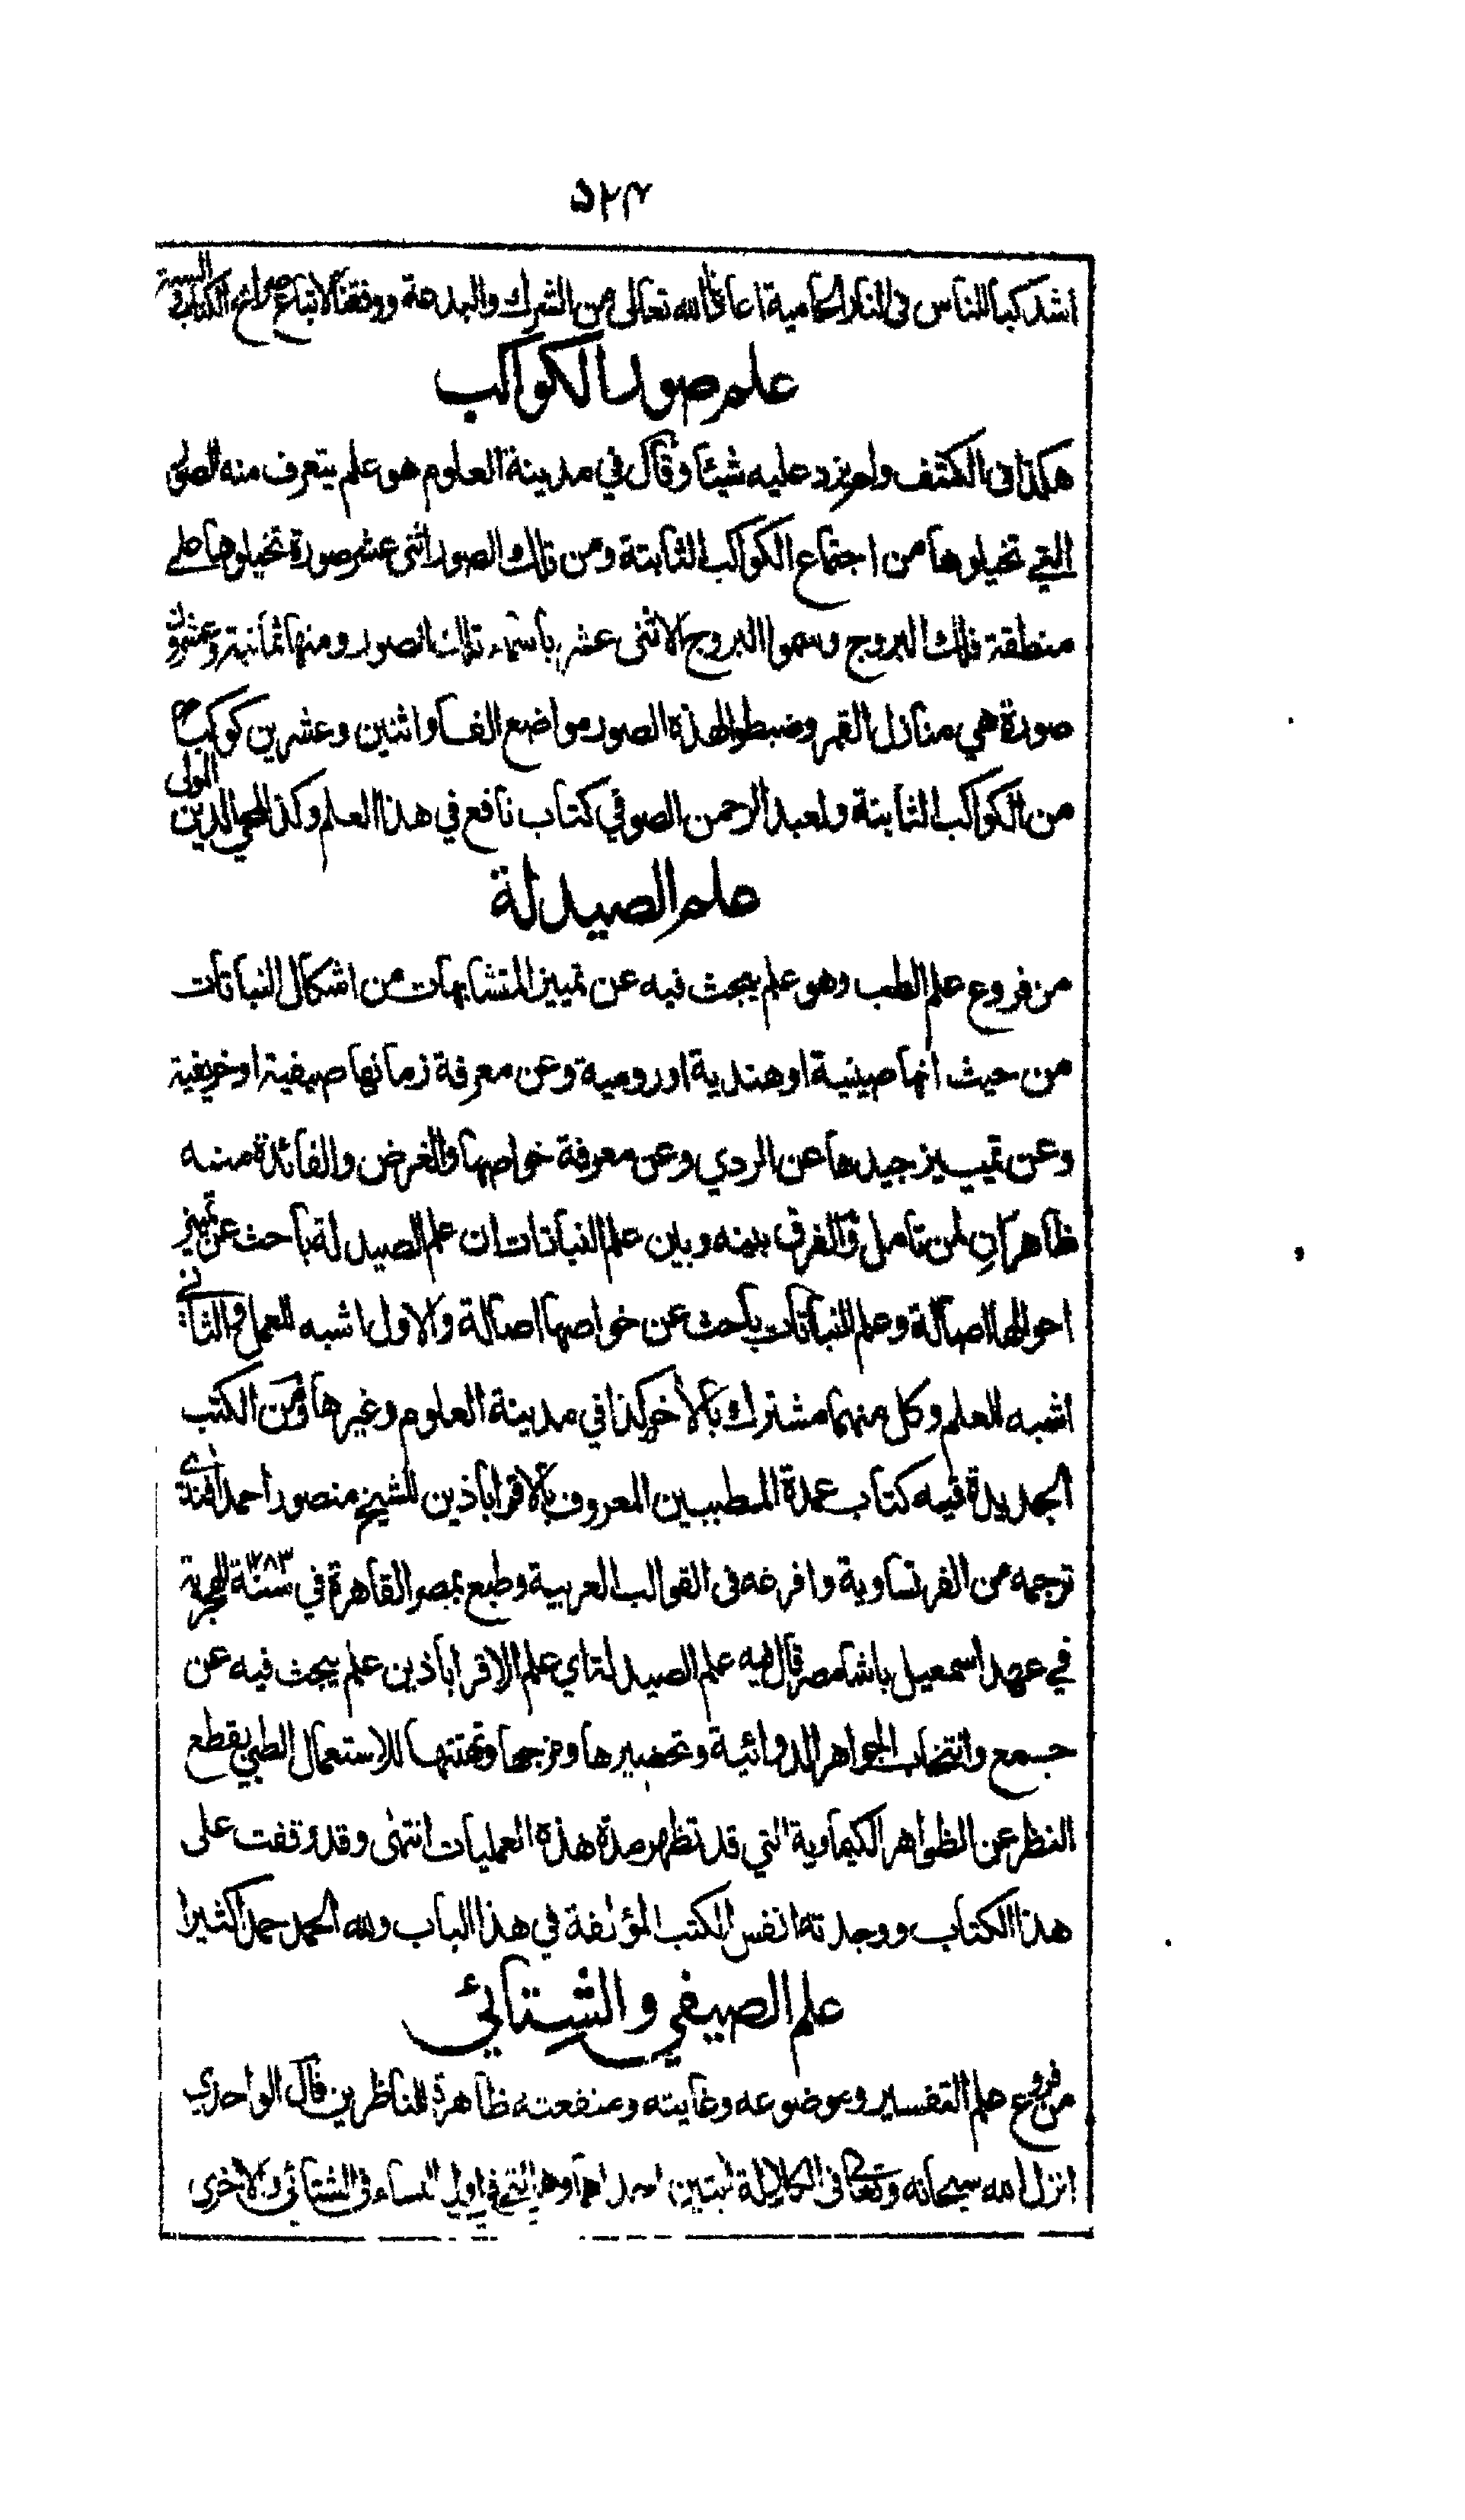 ۵۲۴
اشد كبا للناس فى النار الحامية اعاذنا الله تعالى من الشرك والبدعة ووفقنا لاتباع صرائح الكتاب والسنة
علم صور الكواكب
هكذا فى الكشف ولم يزد عليه شيئا وقال في مدينة العلوم هو علم يتعرف منه الصور
التي تخيلوها من اجتماع الكواكب الثابتة ومن تلك الصور اثنى عشر صورة تخيلوها على
منطقة فلك البروج وسموا البروج الاثنى عشر باسماء تلك الصور ومنها ثمانية وعشرون
صورة هي منازل القمر وضبطوا لهذه الصور مواضع الف واثنين وعشرين كوكبا
من الكواكب الثابتة ولعبد الرحمن الصوفي كتاب نافع في هذا العلم وكذا لمحي الدين المولى
علم الصيدلة
من فروع علم الطب وهو علم يبحث فيه عن تمييز المتشابهات من اشكال النباتات
من حيث انها صينية او هندية او رومية وعن معرفة زمانها صيفية او خريفية
وعن تمييز جيدها عن الردي وعن معرفة خواصها والغرض والفائدة منه
ظاهران لمن تامل والفرق بينه وبين علم النباتات ان علم الصيدلة باحث عن تمييز
احوالها اصالة وعلم النباتات باحث عن خواصها اصالة والاول اشبه للعمل والثاني
اشبه للعلم وكل منهما مشترك بالأخر كذا في مدينة العلوم وغيرها ومن الكتب
الجديدة فيه كتاب عمدة المتطببين المعروف بالاقراباذين للشيخ منصور احمد افندي
ترجمه من الفرنساوية وافرغه فى القوالب العربية وطبع بمصر القاهرة في سنة ۱۲۸۳ الهجرية
في عهد اسمعيل باشا مصر قال فيه علم الصيدلة اي علم الاقراباذين علم يبحث فيه عن
جمع وانتخاب الجواهر الدوائية وتحضيرها ومزجها وتهيئتها للاستعمال الطبي بقطع
النظر عن الظواهر الكيماوية التي قد تظهر مدة هذه العمليات انتهى وقد وقفت على
هذا الكتاب ووجدته انفس الكتب المؤلفة في هذا الباب ولله الحمد حمدا كثيرا
علم الصيفي والشتائي
من فروع علم التفسير وموضوعه وغايته ومنفعته ظاهرة للناظرين قال الواحدي
انزل الله سبحانه وتعالى فى الكلالة ايتين احداهما وهي التي في اول النساء فى الشتائي والاخرى